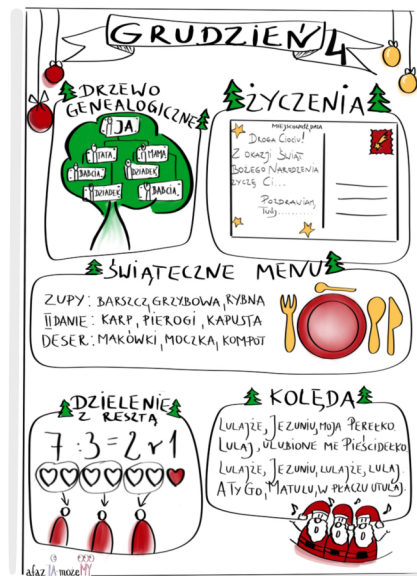 GRUDZIEŃ 4
DRZEWO
GENEALOGICZNE
JA
TATA
MAMA
BABCIA
DZIADEK
DZIADEK
BABCIA
ŻYCZENIA
MIEJSCOWOŚĆ, DATA
DROGA CIOCIU!
Z OKAZJI ŚWIĄT
BOŻEGO NARODZENIA
ŻYCZĘ CI...
POZDRAWIAM,
TWÓJ..........
ŚWIĄTECZNE MENU
ZUPY: BARSZCZ, GRZYBOWA, RYBNA
II DANIE: KARP, PIEROGI, KAPUSTA
DESER: MAKÓWKI, MOCZKA, KOMPOT
DZIELENIE
Z RESZTĄ
7 : 3 = 2 r 1
KOLĘDA
LULAJŻE, JEZUNIU, MOJA PEREŁKO.
LULAJ, ULUBIONE ME PIEŚCIDEŁKO.
LULAJŻE, JEZUNIU, LULAJŻE, LULAJ.
A TY GO, MATULU, W PŁACZU UTULAJ.
afaz JA może MY